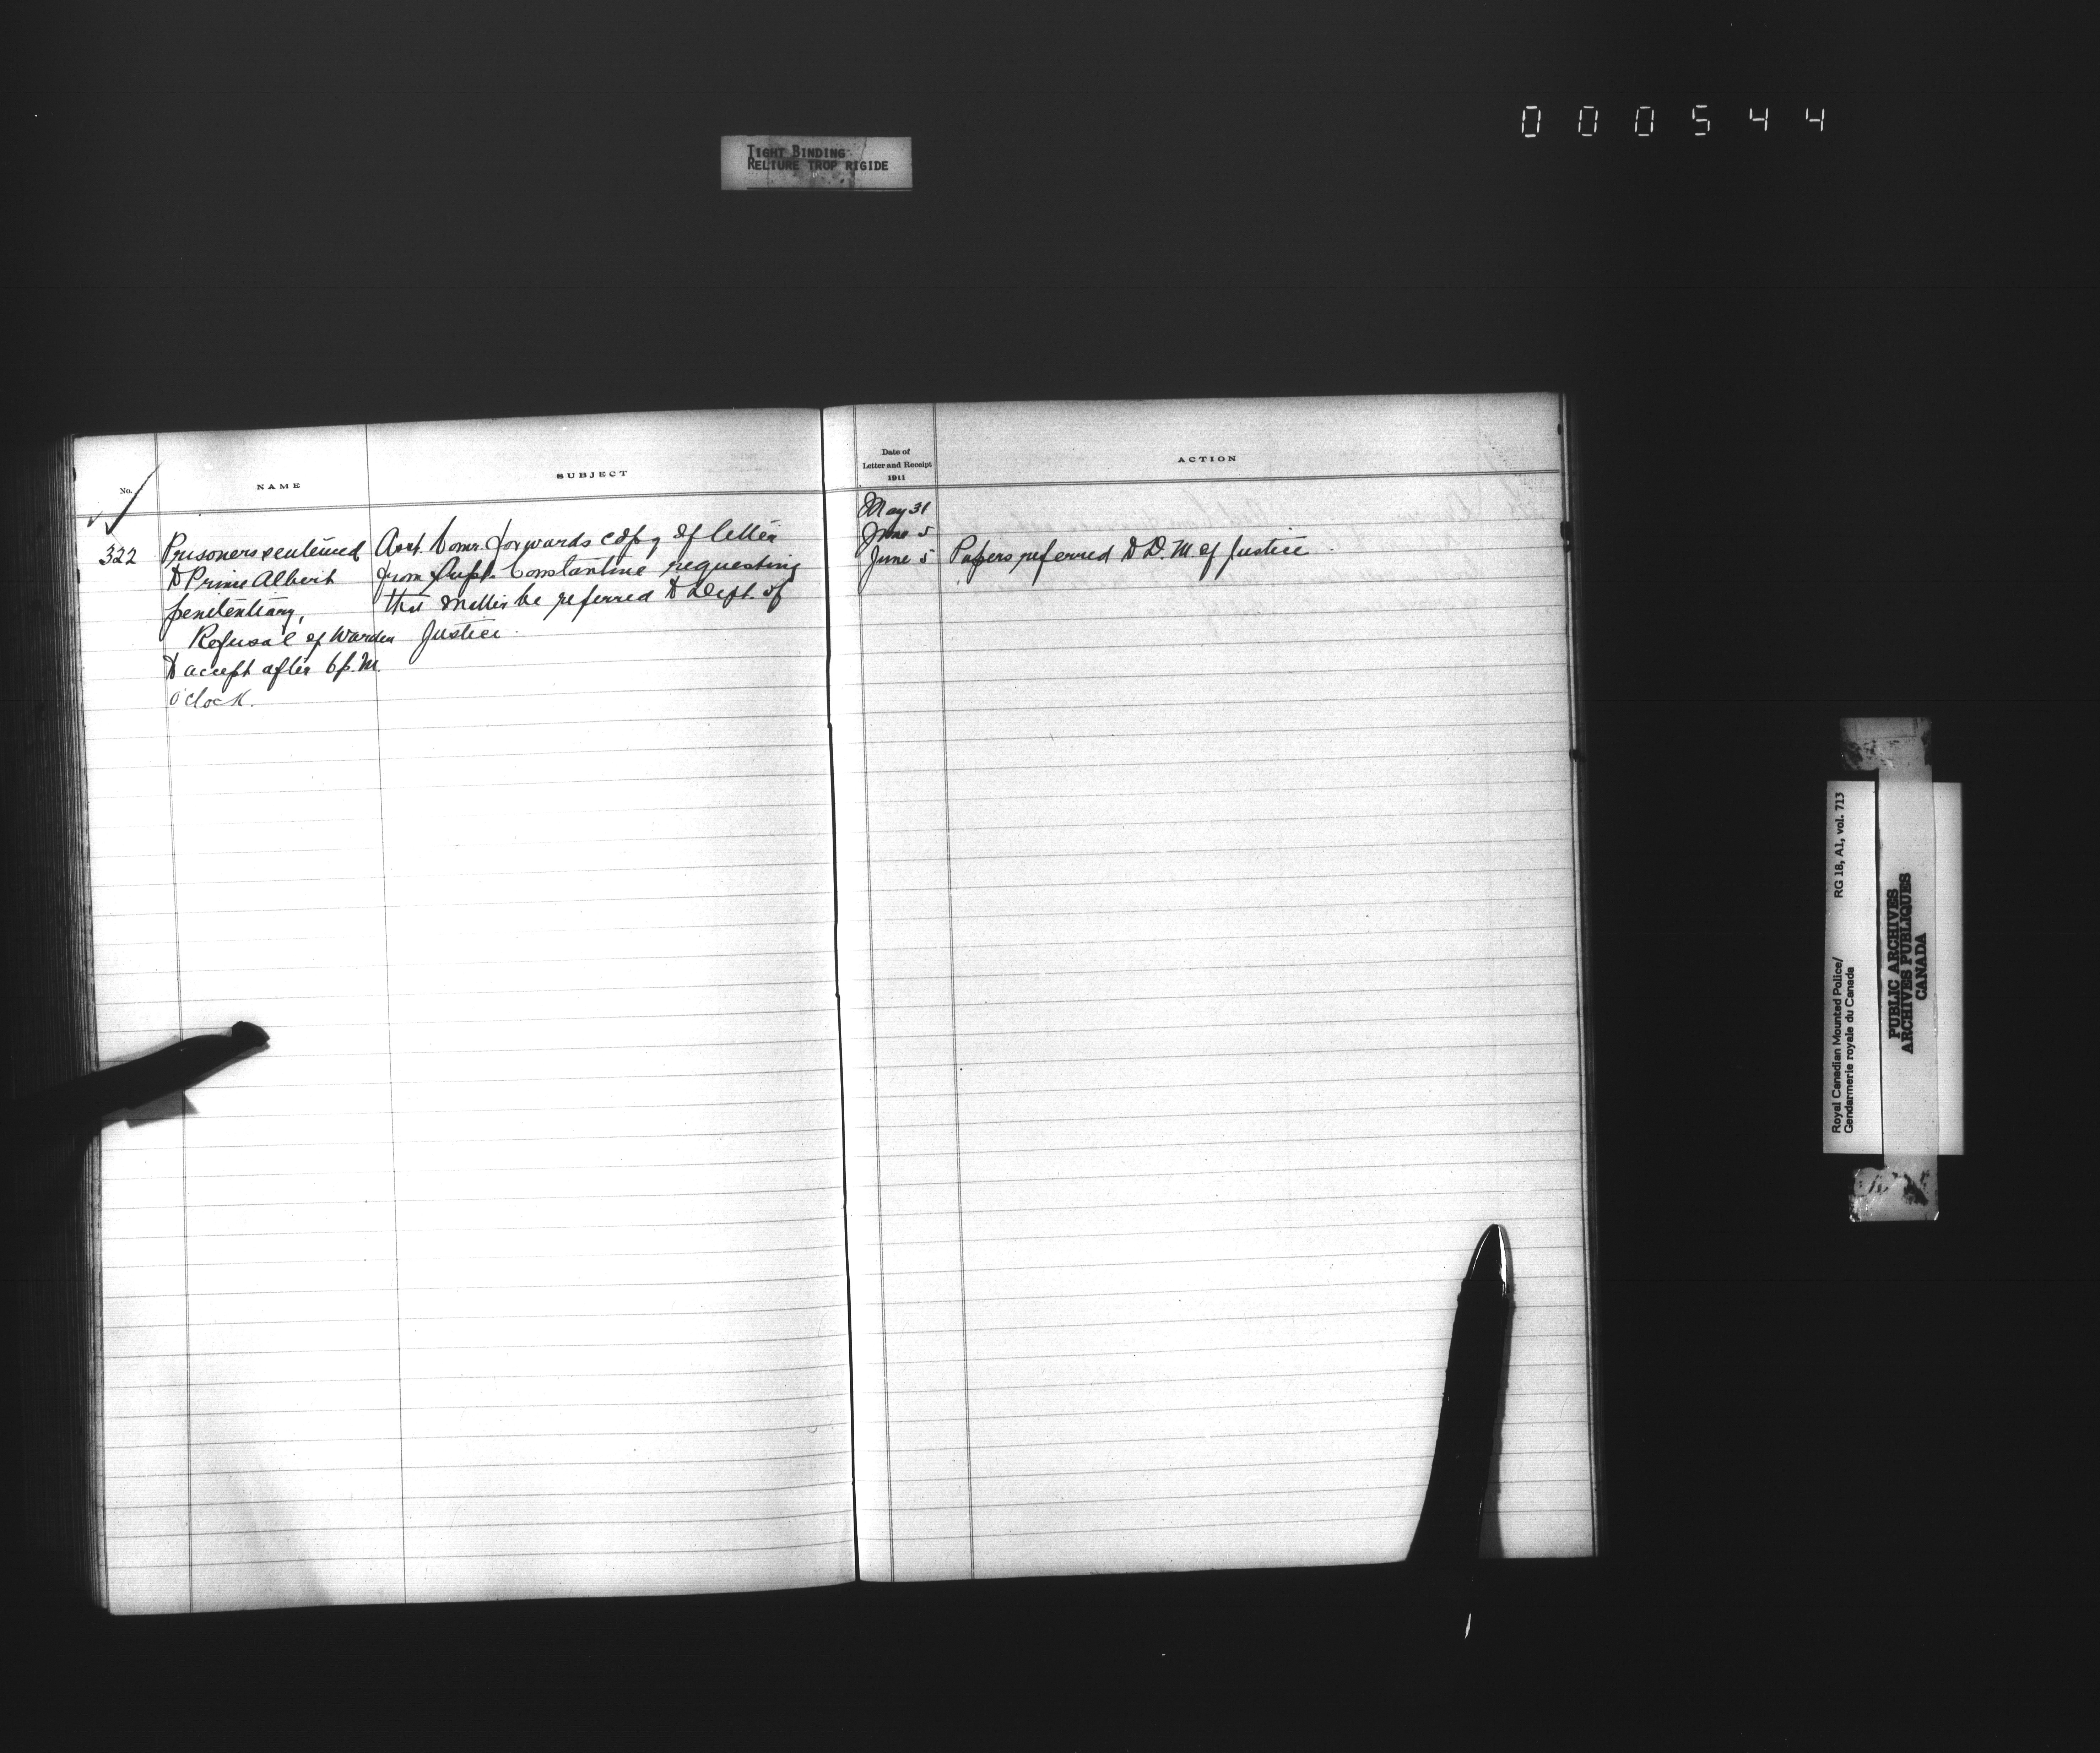 000544
TIGHT BINDING
RELIURE TROP RIGIDE
No.
NAME
SUBJECT
Date of
Letter and Receipt
1911
ACTION
322
Prisoners sentenced
to Prince Albert
penitentiary,
Refusal of Warden
to accept after 6 p.m.
o'clock.
Asst. Comr. forwards copy of letter
from Supt. Constantine requesting
that matter be referred to Dept. of
Justice.
May 31
June 5
June 5
Papers referred to D. M. of Justice.
Royal Canadian Mounted Police/
Gendarmerie royale du Canada
RG 18, A1, vol. 713
PUBLIC ARCHIVES
ARCHIVES PUBLIQUES
CANADA